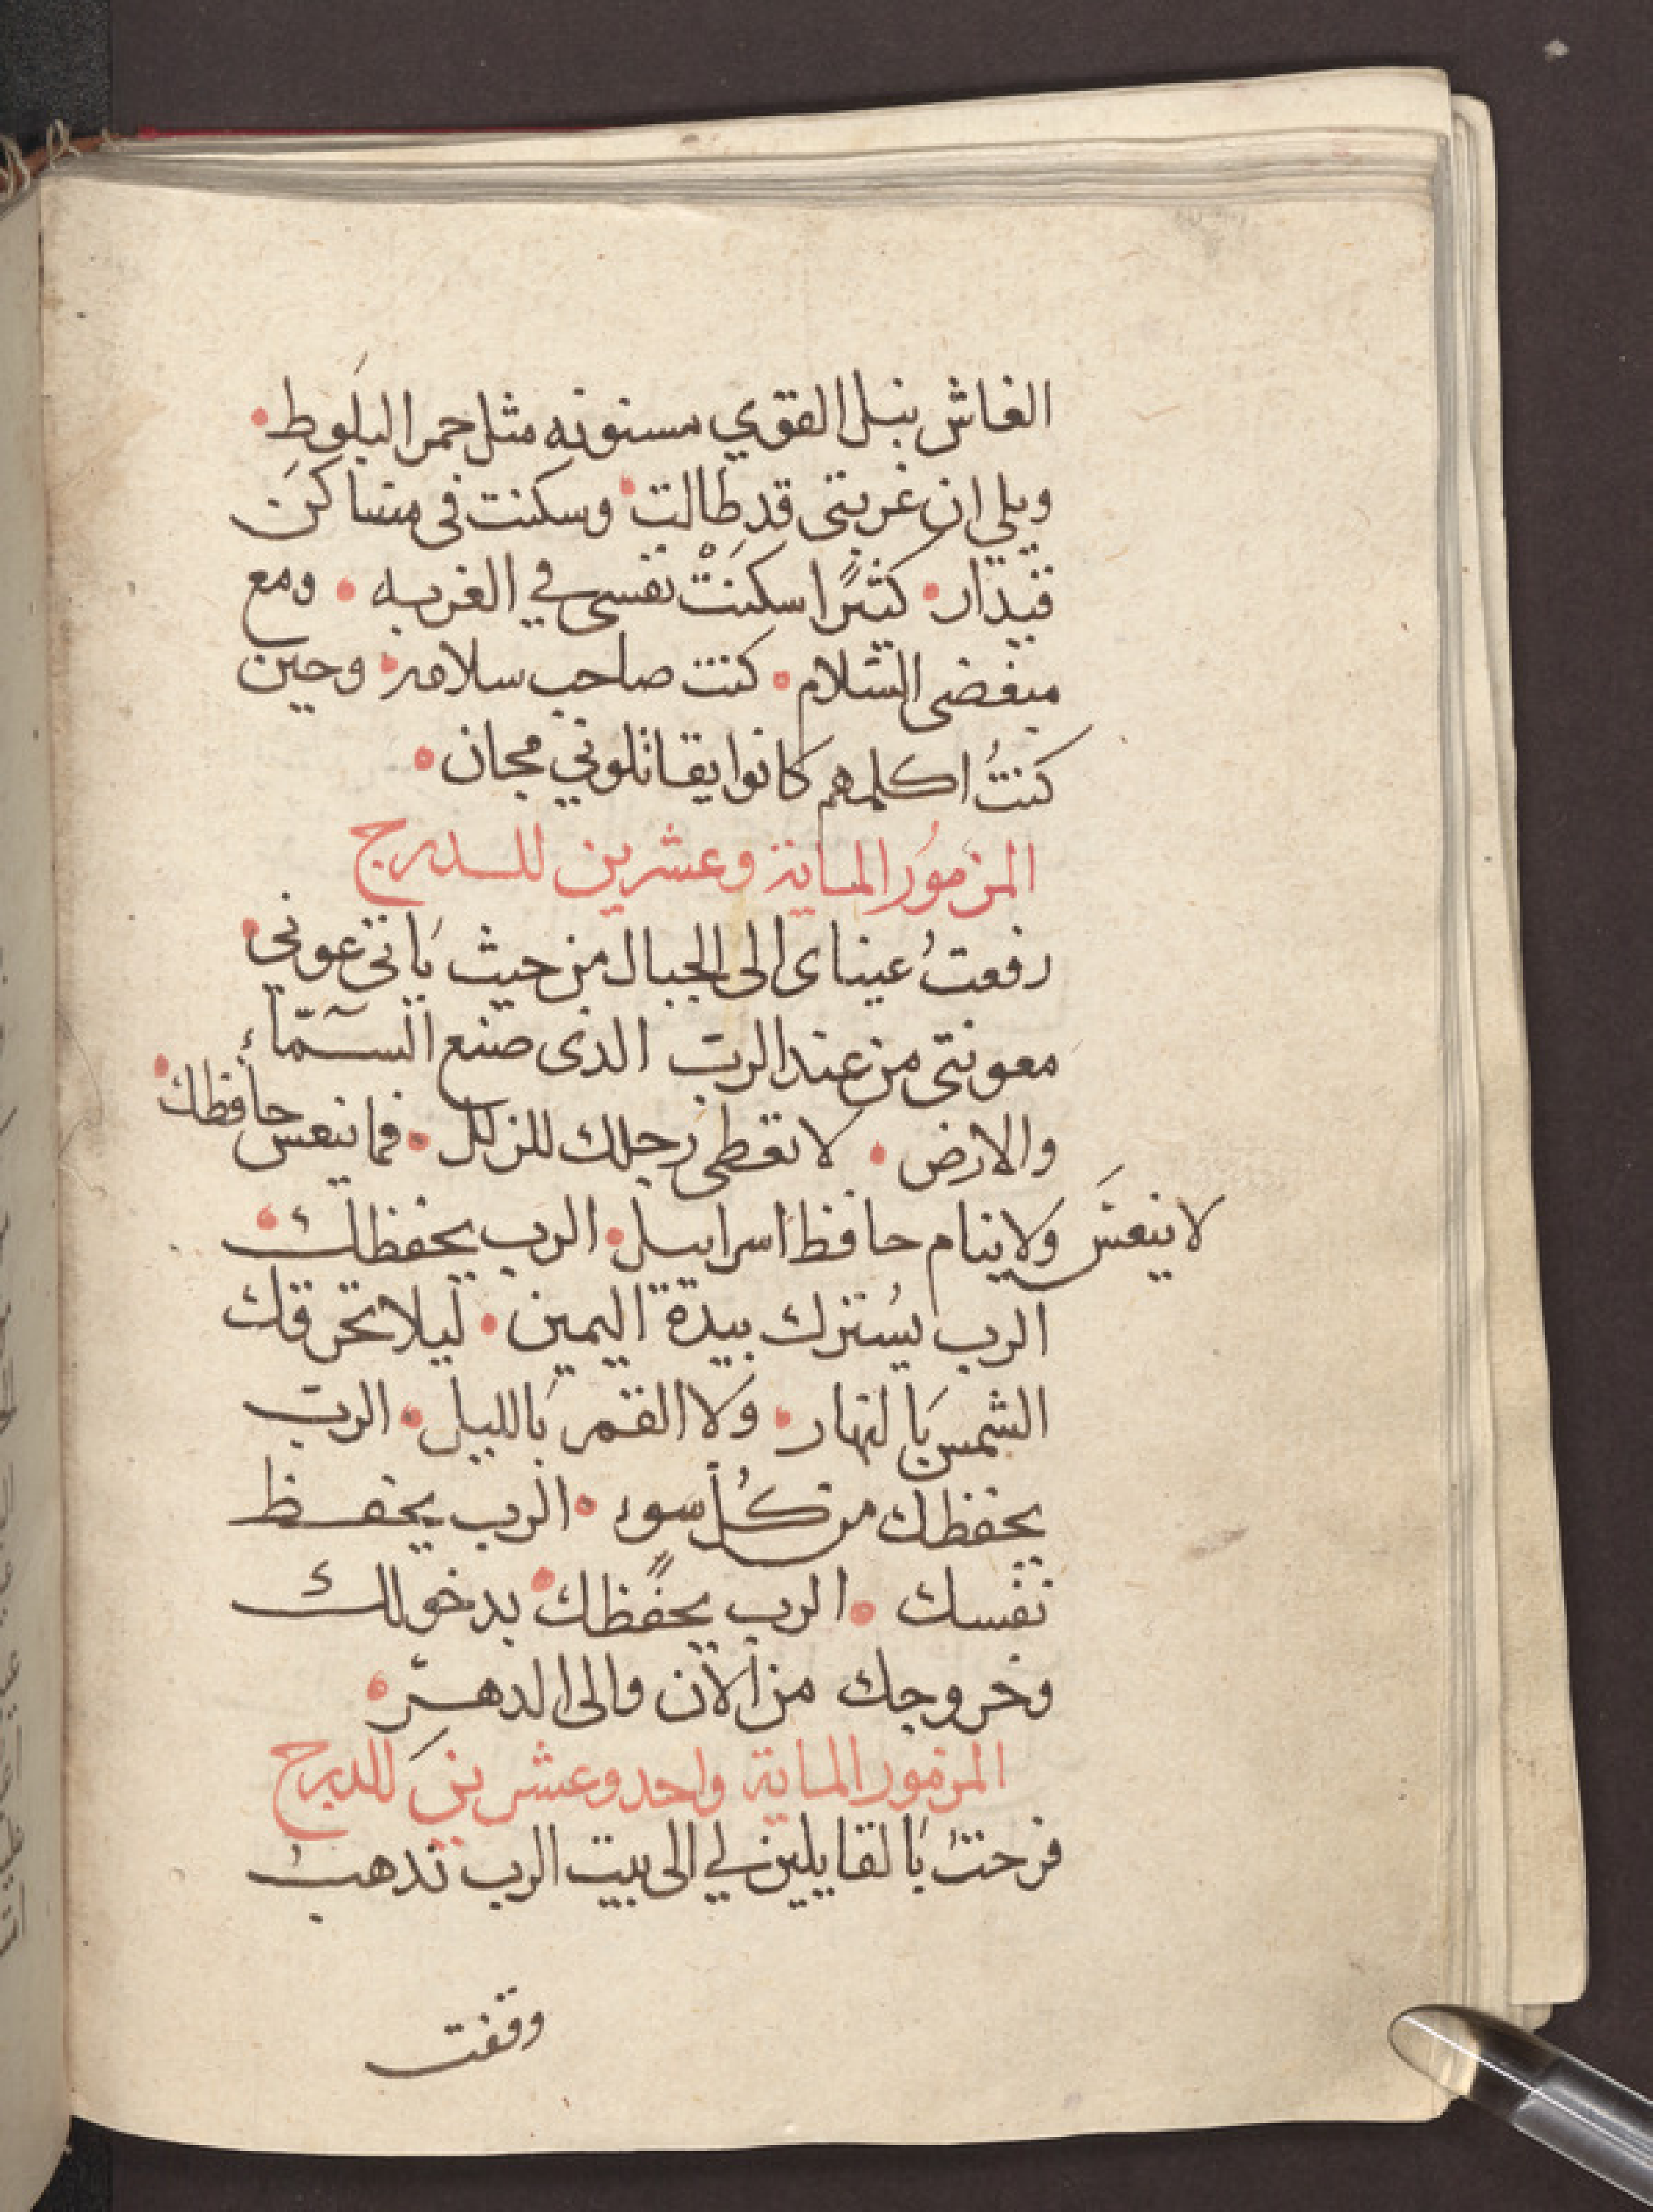 الغاش نبل القوي مسنونه مثل جمر البلوط
ويلي ان غربتي قد طالت وسكنت في مساكن
قيدار كثيرًا سكنَتْ نفسي في الغربه ومع
مبغضى السّلام كنت صاحب سلامه وحين
كنتُ اكلمهم كانوا يقاتلوني مجان
المزمُور الماية وعشرين للدرج
رفعتُ عيناى الى الجبال من حيث يَاتي عوني
معونتي من عند الربّ الذى صنع السّمآء
والارض لا تعطى رجلك للزلل فما ينعس حافظك
لا ينعسَ وَلا ينام حافظ اسراييل الرب يحفظك
الرب يسُترك بيدة اليمين ليلا تحرقك
الشمس بَالنهار وَلا القمر بَالليل الربّ
يحفظك من كُل سوء الرب يحفظ
نفسك الرب يحفظك بدخولك
وخروجك من الان والى الدهر
المزمور الماية واحد وعشرين للدرج
فرحتُ بَالقايلين لي الى بيت الرب ندهبُ
وقفت